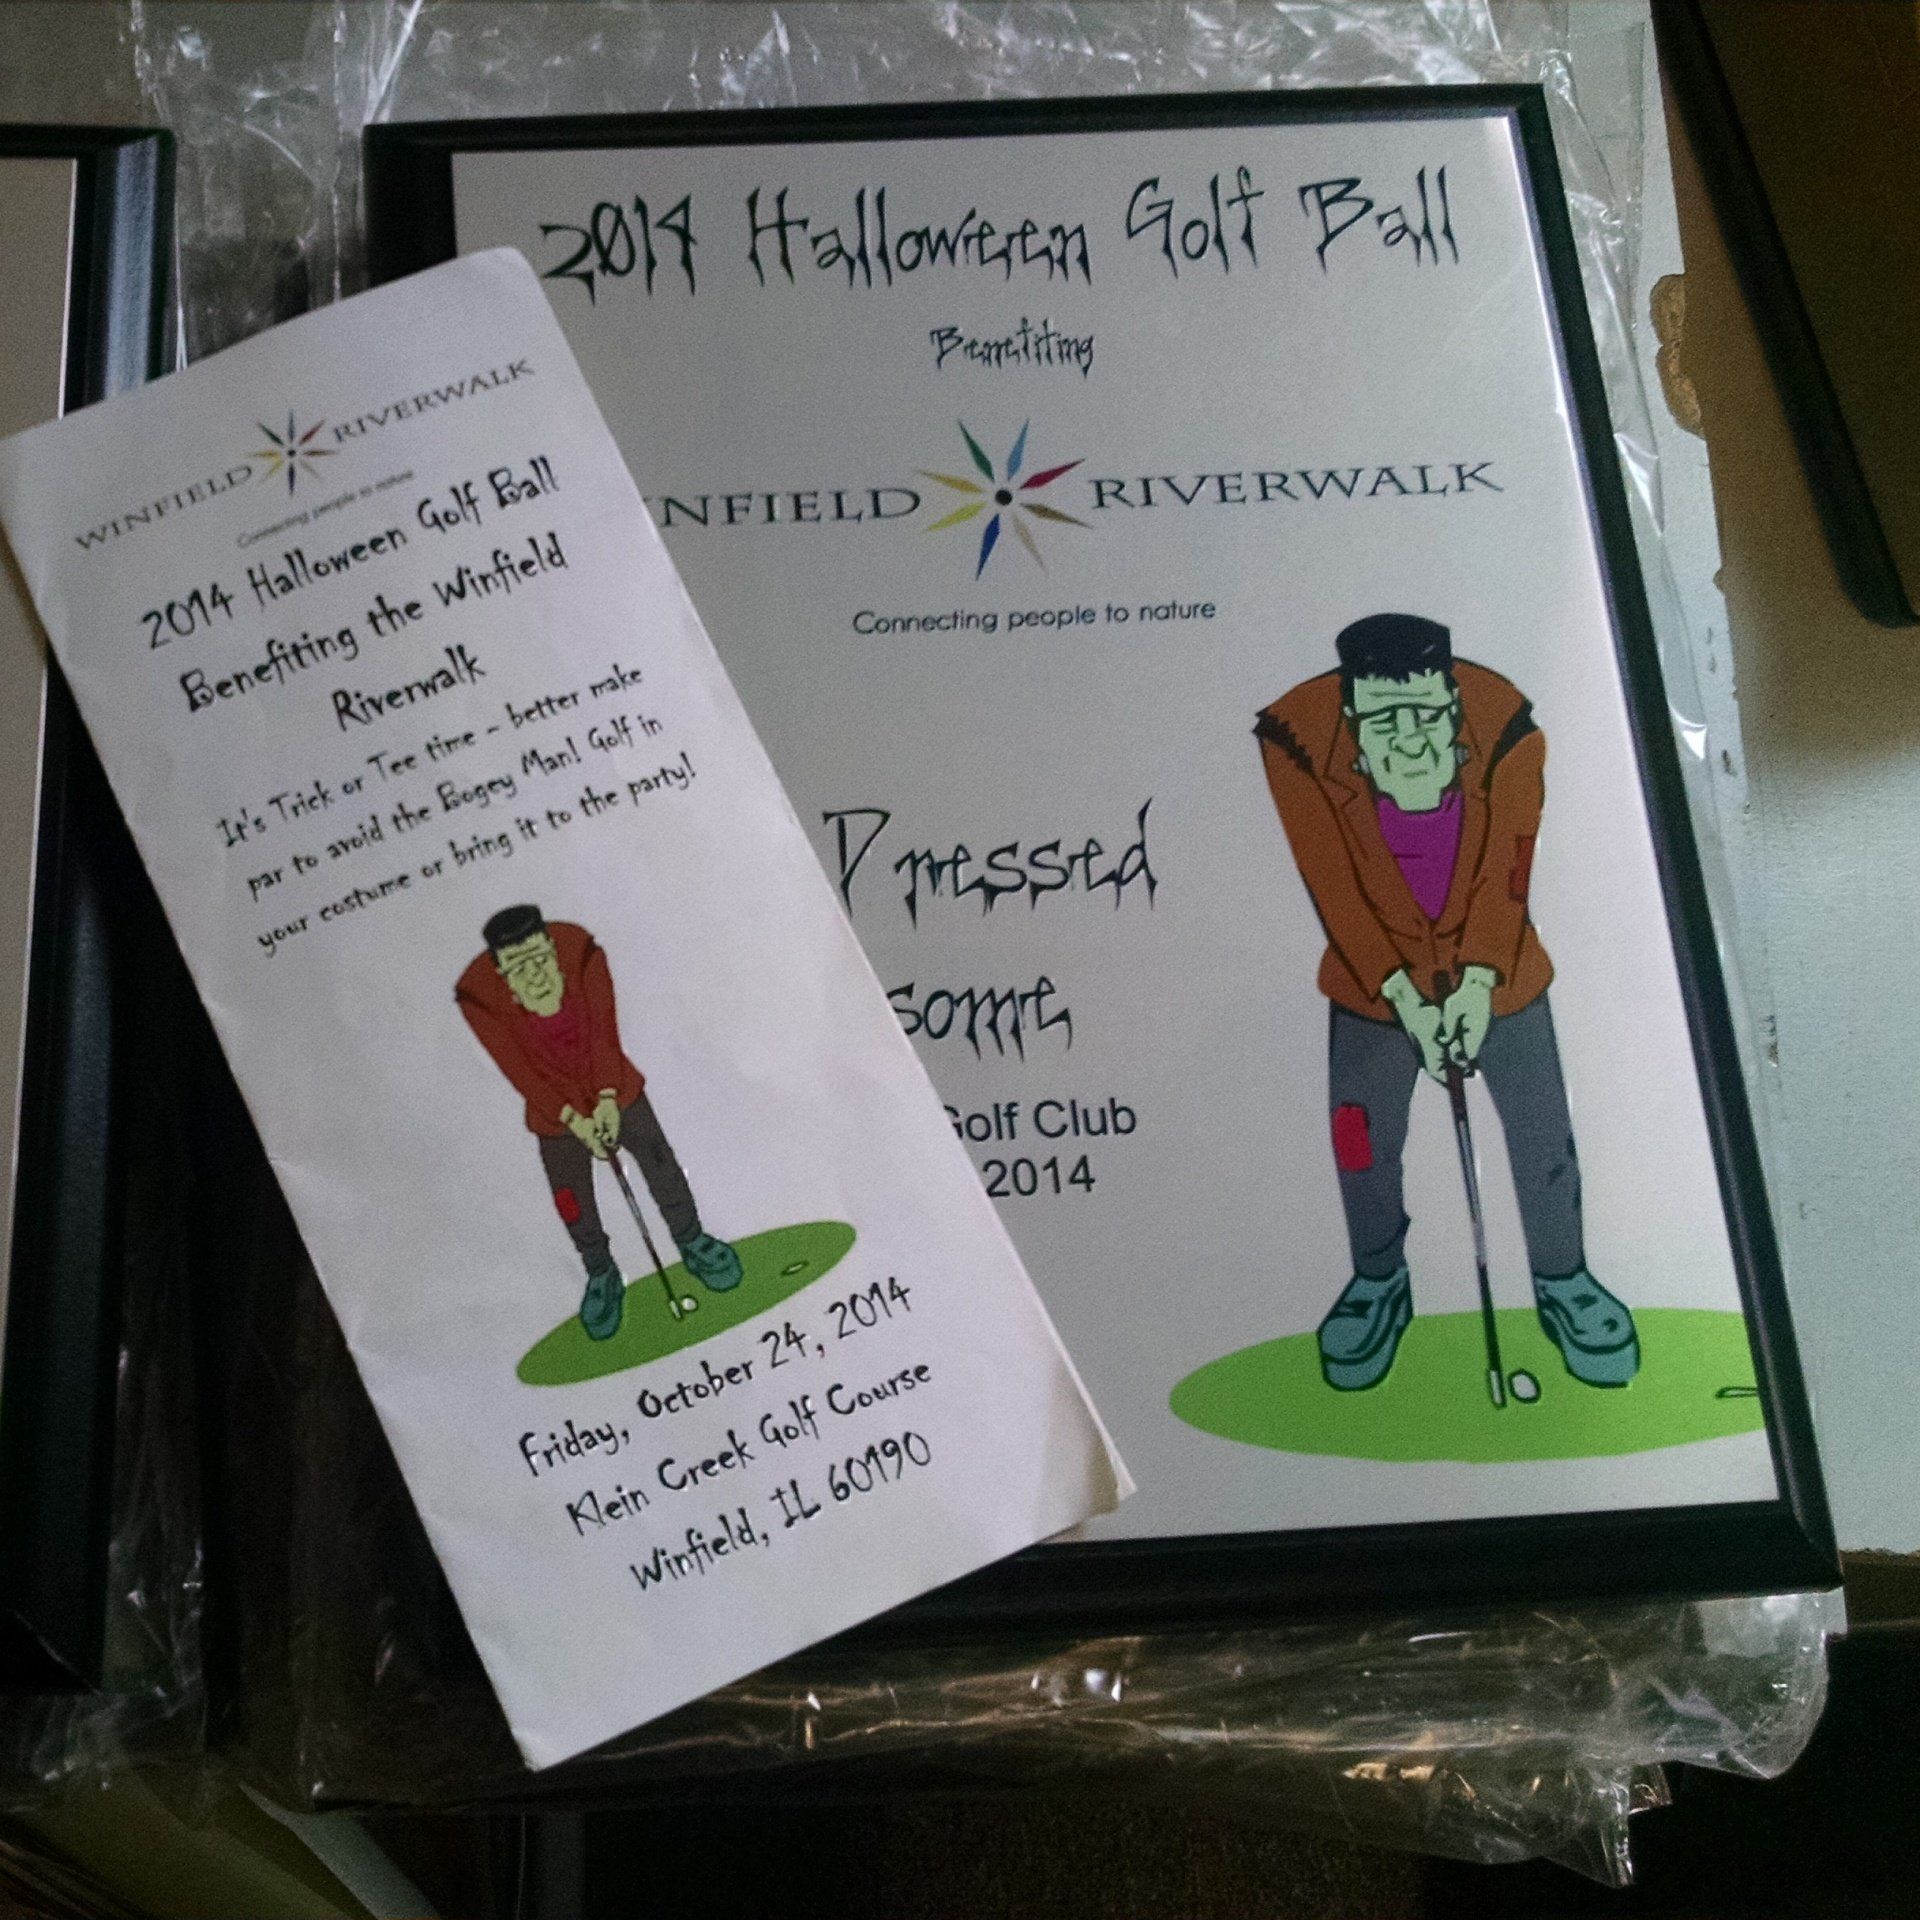 WINFIELD RIVERWALK
Connecting people to nature
2014 Halloween Golf Ball
Benefiting the Winfield
Riverwalk
It's Trick or Tee time - better make
par to avoid the Bogey Man! Golf in
your costume or bring it to the party!
Friday, October 24, 2014
Klein Creek Golf Course
Winfield, IL 60190
2014 Halloween Golf Ball
Benefiting
NFIELD RIVERWALK
Connecting people to nature
Dressed
some
Golf Club
2014